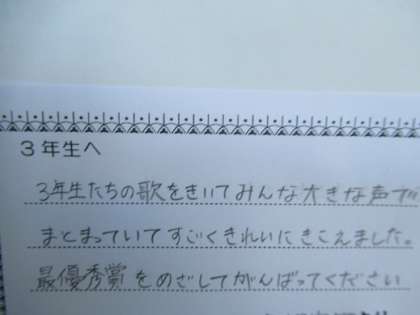 3年生へ
3年生たちの歌をきいてみんな大きな声で
まとまっていてすごくきれいにきこえました。
最優秀賞をめざしてがんばってください